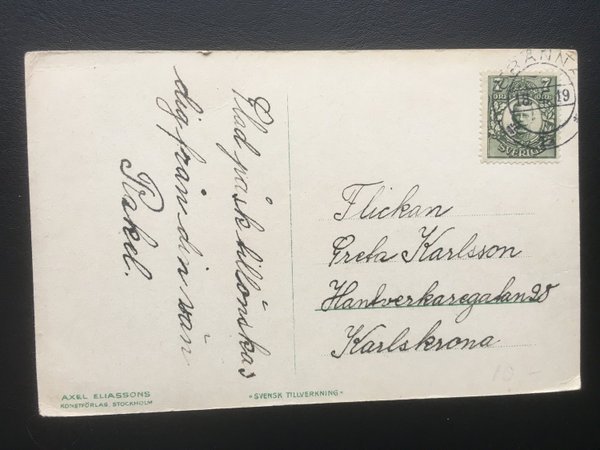 Glad påsk tillönskas
dig från din vän
Rakel.
7 7
SVERIGE
19
Flickan
Greta Karlsson
Hantverkaregatan 20
Karlskrona
10 -
AXEL ELIASSONS
KONSTFÖRLAG STOCKHOLM
"SVENSK TILLVERKNING"